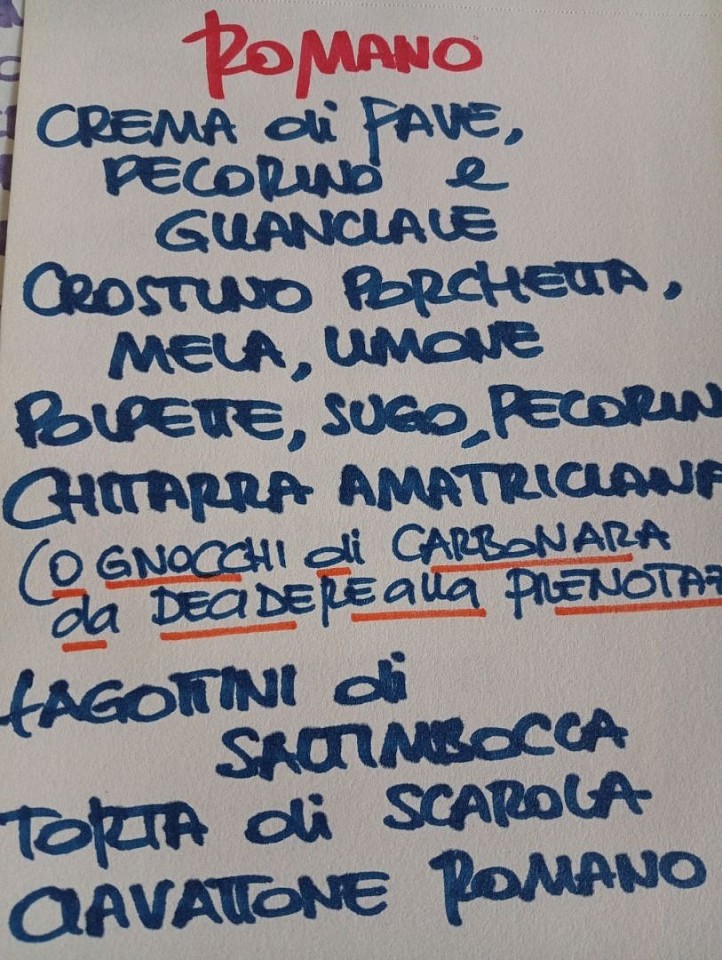 ROMANO
CREMA di FAVE,
PECORINO e
GUANCIALE
CROSTINO PORCHETTA,
MELA, LIMONE
POLPETTE, SUGO, PECORIN
CHITARRA AMATRICIANA
(O GNOCCHI di CARBONARA
da DECIDERE alla PRENOTAZ
fAGOTTINI di
SALTIMBOCCA
TORTA di SCAROLA
CIAVATTONE ROMANO